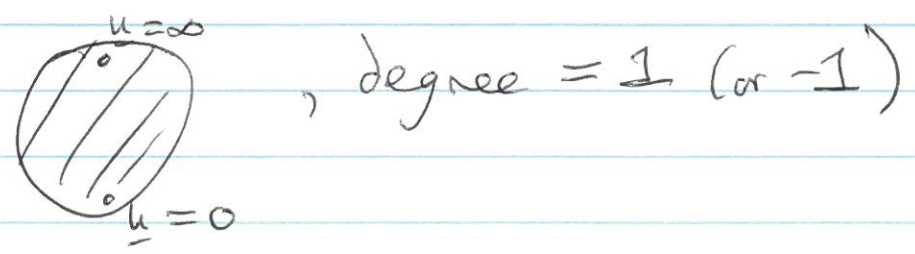 u = ∞
, degree = 1 (or -1)
u = 0